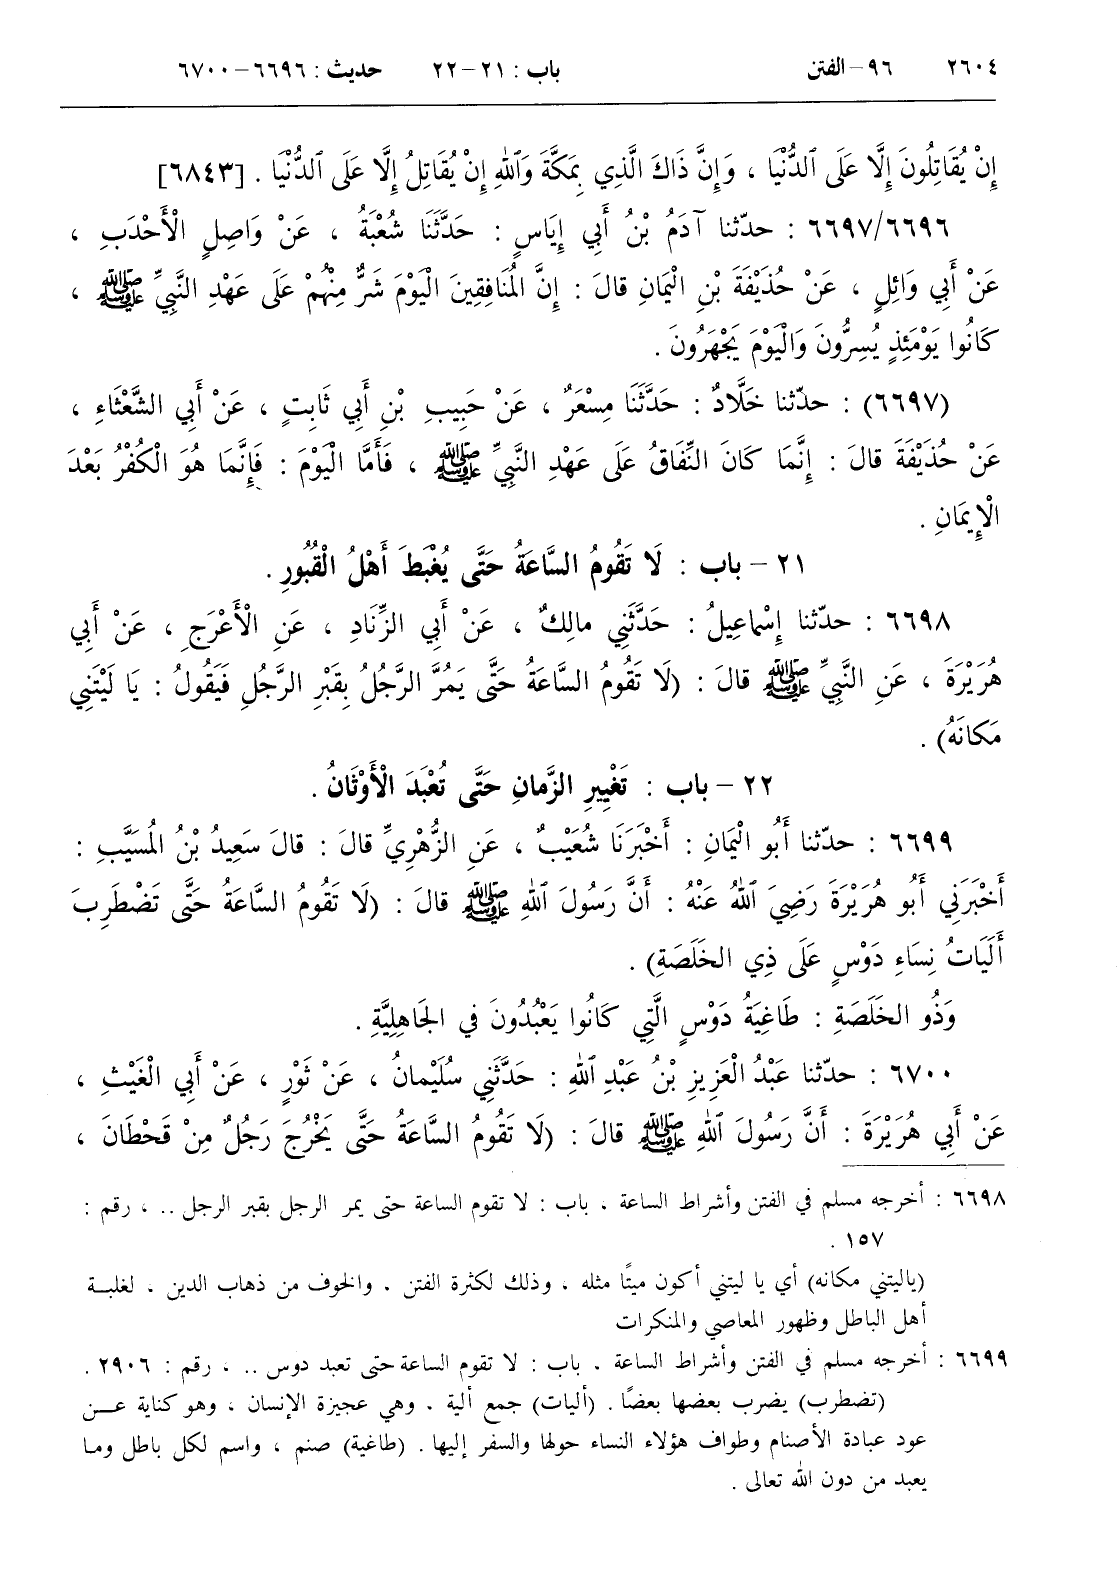 ٢٦٠٤ ٩٦ – الفتن باب : ٢١ – ٢٢ حديث : ٦٦٩٦ – ٦٧٠٠
إِنْ يُقَاتِلُونَ إِلَّا عَلَى ٱلدُّنْيَا ، وَإِنَّ ذَاكَ الَّذِي بِمَكَّةَ وَٱللهِ إِنْ يُقَاتِلُ إِلَّا عَلَى ٱلدُّنْيَا . [٦٨٤٣]
٦٦٩٧/٦٦٩٦ : حدّثنا آدَمُ بْنُ أَبِي إِيَاسٍ : حَدَّثَنَا شُعْبَةُ ، عَنْ وَاصِلٍ الْأَحْدَبِ ،
عَنْ أَبِي وَائِلٍ ، عَنْ حُذَيْفَةَ بْنِ الْيَمَانِ قالَ : إِنَّ الْمُنَافِقِينَ الْيَوْمَ شَرٌّ مِنْهُمْ عَلَى عَهْدِ النَّبِيِّ ﷺ ،
كَانُوا يَوْمَئِذٍ يُسِرُّونَ وَالْيَوْمَ يَجْهَرُونَ .
(٦٦٩٧) : حدّثنا خَلَّادٌ : حَدَّثَنَا مِسْعَرٌ ، عَنْ حَبِيبِ بْنِ أَبِي ثَابِتٍ ، عَنْ أَبِي الشَّعْثَاءِ ،
عَنْ حُذَيْفَةَ قالَ : إِنَّمَا كَانَ النِّفَاقُ عَلَى عَهْدِ النَّبِيِّ ﷺ ، فَأَمَّا الْيَوْمَ : فَإِنَّمَا هُوَ الْكُفْرُ بَعْدَ
الْإِيمَانِ .
٢١ – باب : لَا تَقُومُ السَّاعَةُ حَتَّى يُغْبَطَ أَهْلُ الْقُبُورِ .
٦٦٩٨ : حدّثنا إِسْماعِيلُ : حَدَّثَنِي مالِكٌ ، عَنْ أَبِي الزِّنَادِ ، عَنِ الْأَعْرَجِ ، عَنْ أَبِي
هُرَيْرَةَ ، عَنِ النَّبِيِّ ﷺ قالَ : (لَا تَقُومُ السَّاعَةُ حَتَّى يَمُرَّ الرَّجُلُ بِقَبْرِ الرَّجُلِ فَيَقُولُ : يَا لَيْتَنِي
مَكانَهُ) .
٢٢ – باب : تَغْيِيرِ الزَّمانِ حَتَّى تُعْبَدَ الْأَوْثَانُ .
٦٦٩٩ : حدّثنا أَبُو الْيَمَانِ : أَخْبَرَنَا شُعَيْبٌ ، عَنِ الزُّهْرِيِّ قالَ : قالَ سَعِيدُ بْنُ الْمُسَيَّبِ :
أَخْبَرَنِي أَبُو هُرَيْرَةَ رَضِيَ ٱللهُ عَنْهُ : أَنَّ رَسُولَ ٱللهِ ﷺ قالَ : (لَا تَقُومُ السَّاعَةُ حَتَّى تَضْطَرِبَ
أَلَيَاتُ نِسَاءِ دَوْسٍ عَلَى ذِي الخَلَصَةِ) .
وَذُو الخَلَصَةِ : طَاغِيَةُ دَوْسٍ الَّتِي كَانُوا يَعْبُدُونَ فِي الجَاهِلِيَّةِ .
٦٧٠٠ : حدّثنا عَبْدُ الْعَزِيزِ بْنُ عَبْدِ ٱللهِ : حَدَّثَنِي سُلَيْمانُ ، عَنْ ثَوْرٍ ، عَنْ أَبِي الْغَيْثِ ،
عَنْ أَبِي هُرَيْرَةَ : أَنَّ رَسُولَ ٱللهِ ﷺ قالَ : (لَا تَقُومُ السَّاعَةُ حَتَّى يَخْرُجَ رَجُلٌ مِنْ قَحْطَانَ ،
٦٦٩٨ : أخرجه مسلم في الفتن وأشراط الساعة ، باب : لا تقوم الساعة حتى يمر الرجل بقبر الرجل .. ، رقم :
١٥٧ .
(ياليتني مكانه) أي يا ليتني أكون ميتًا مثله ، وذلك لكثرة الفتن ، والخوف من ذهاب الدين ، لغلبة
أهل الباطل وظهور المعاصي والمنكرات
٦٦٩٩ : أخرجه مسلم في الفتن وأشراط الساعة ، باب : لا تقوم الساعة حتى تعبد دوس .. ، رقم : ٢٩٠٦ .
(تضطرب) يضرب بعضها بعضًا . (أليات) جمع ألية ، وهي عجيزة الإنسان ، وهو كناية عن
عود عبادة الأصنام وطواف هؤلاء النساء حولها والسفر إليها . (طاغية) صنم ، واسم لكل باطل وما
يعبد من دون الله تعالى .